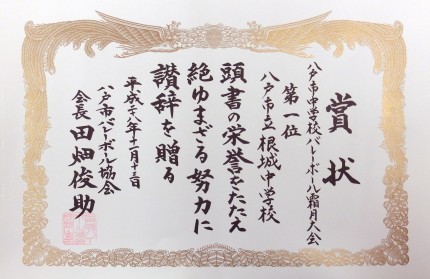 賞状
八戸市中学校バレーボール霜月大会
第一位
八戸市立根城中学校
頭書の栄誉をたたえ
絶ゆまざる努力に
讃辞を贈る
平成十八年十一月十三日
八戸市バレーボール協会
会長田畑俊助